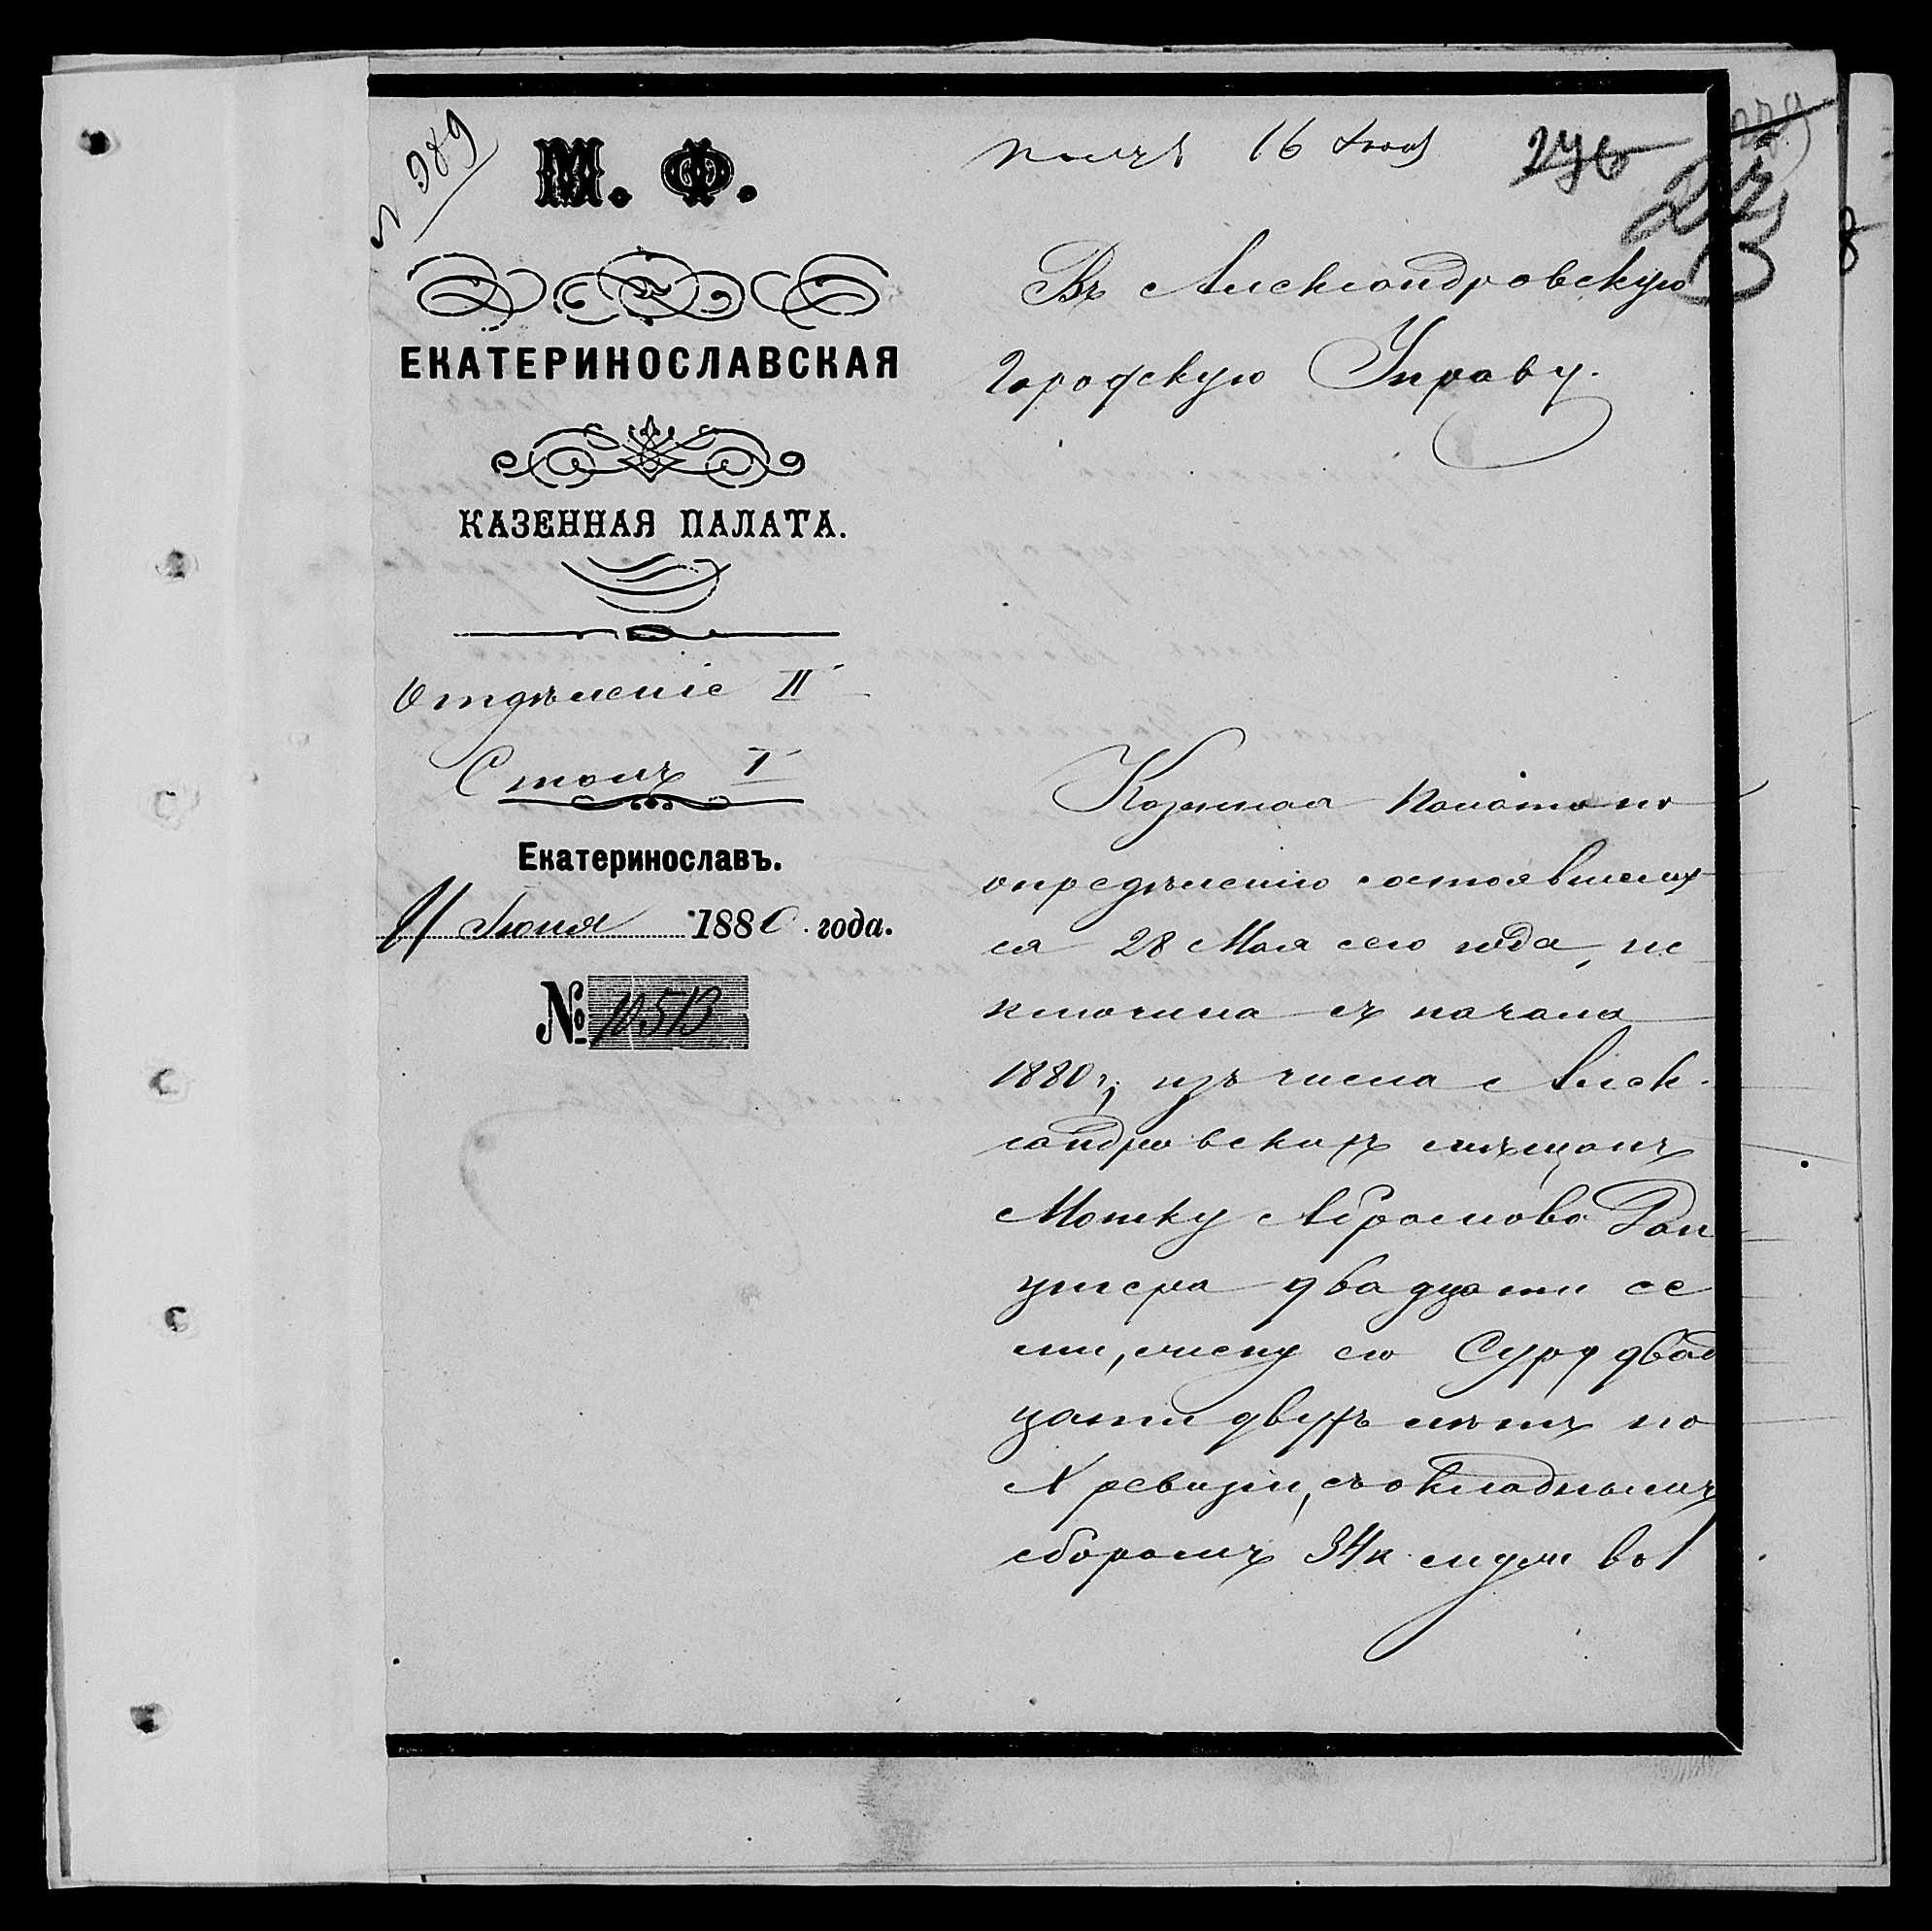 № 989
М. Ф.
ЕКАТЕРИНОСЛАВСКАЯ
КАЗЕННАЯ ПАЛАТА.
Отдѣленіе II
Столъ I
Екатеринославъ.
11 Іюня 1880 года.
№ 10513
получ 16 Іюня
276
279
Въ Александровскую
Городскую Управу.
Казенная Палата по
опредѣленію состоявшему
ся 28 Мая сего года, ис
ключила съ начала
1880 г. изъ числа Алек
сандровскихъ мѣщанъ
Мошку Абрамова
двадцати се
ми, жену его Суру двад
цати двухъ лѣтъ по
X ревизіи, съ окладнымъ
сборомъ 34 к.